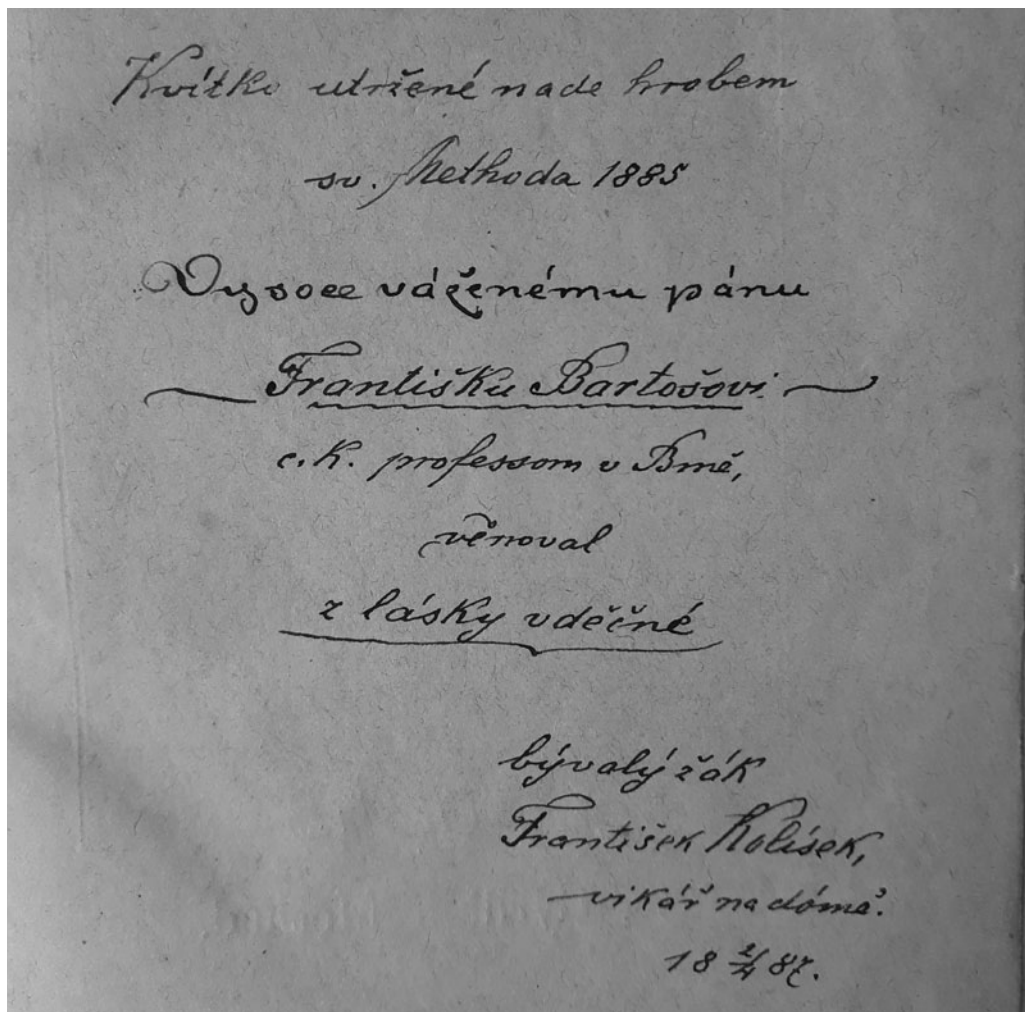 Kvítko utržené nade hrobem
sv. Methoda 1885
Vysoce váženému pánu
Františku Bartošovi
c. k. professoru v Brně,
věnoval
z lásky vděčné
bývalý žák
František Kolísek,
vikář na dómě.
18 2/4 87.